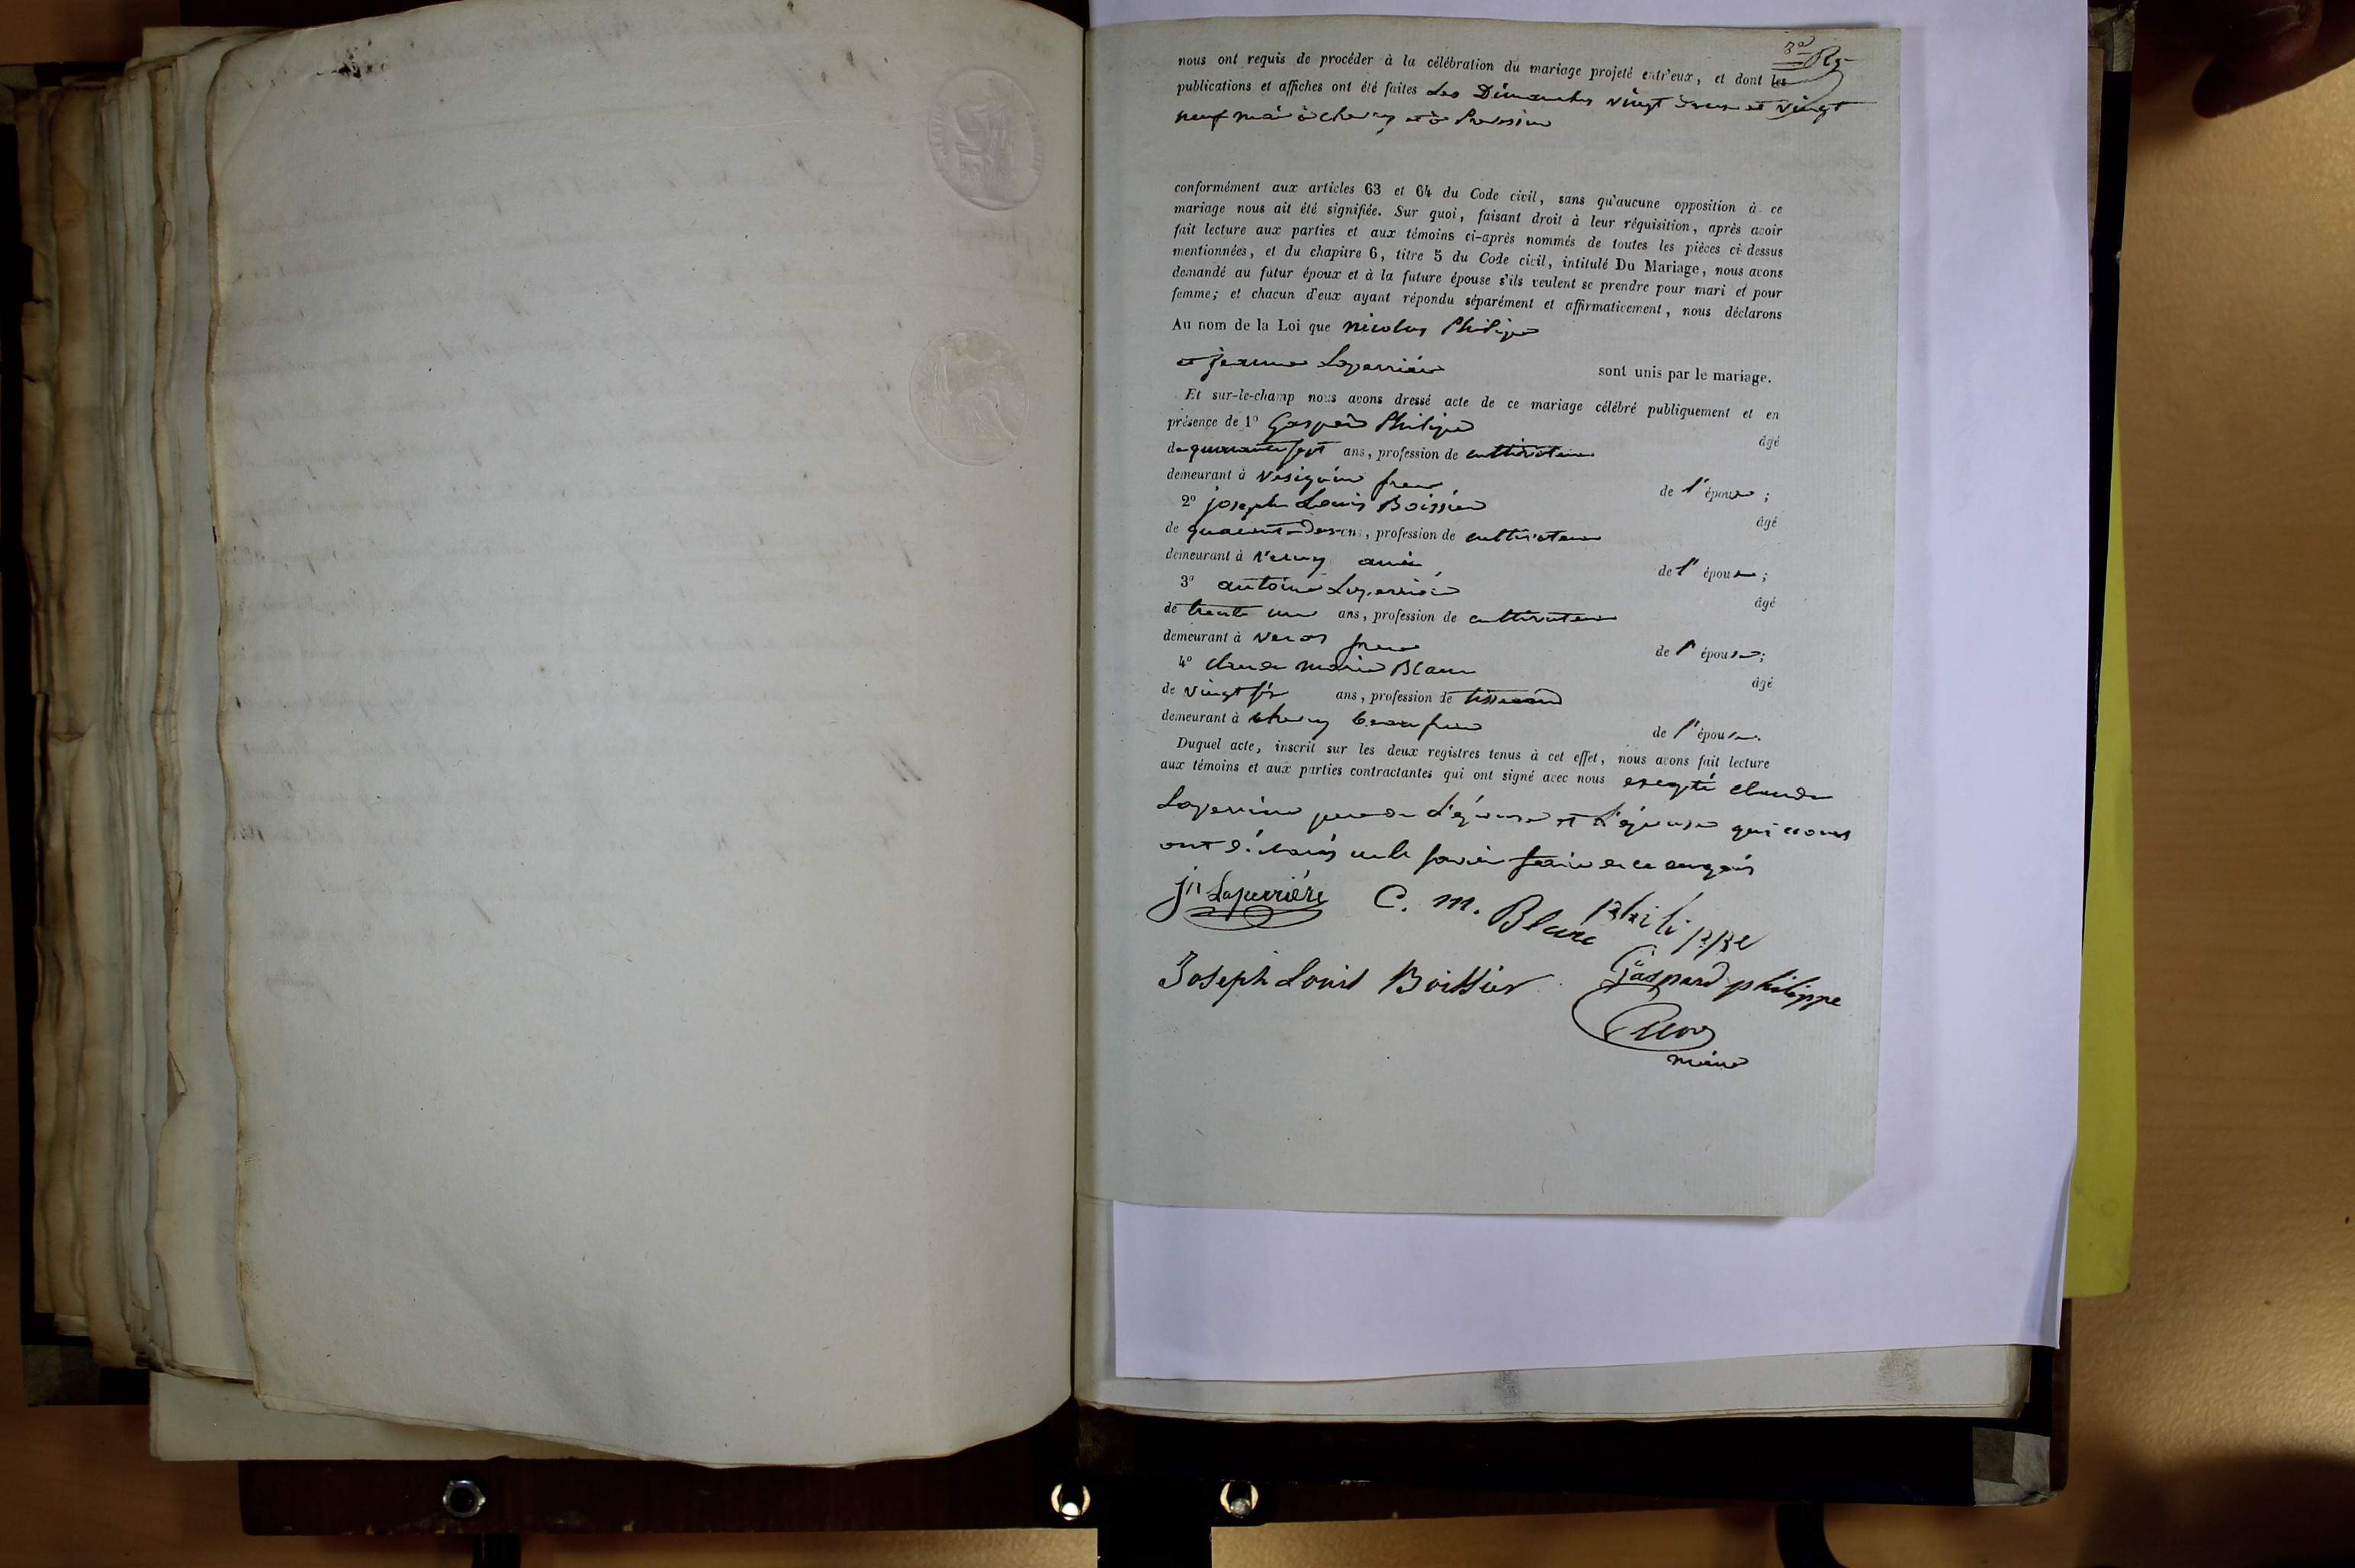 3e
nous ont requis de procéder à la célébration du mariage projeté entr'eux, et dont les
publications et affiches ont été faites Les Dimanches vingt deux et vingt
neuf mai à chevry et à
conformément aux articles 63 et 64 du Code civil, sans qu'aucune opposition à ce
mariage nous ait été signifiée. Sur quoi, faisant droit à leur réquisition, après avoir
fait lecture aux parties et aux témoins ci-après nommés de toutes les pièces ci-dessus
mentionnées, et du chapitre 6, titre 5 du Code civil, intitulé Du Mariage, nous avons
demandé au futur époux et à la future épouse s'ils veulent se prendre pour mari et pour
femme; et chacun d'eux ayant répondu séparément et affirmativement, nous déclarons
Au nom de la Loi que nicolas Philippe
et jeanne Laperrière sont unis par le mariage.
Et sur-le-champ nous avons dressé acte de ce mariage célébré publiquement et en
présence de 1º Gaspard Philippe âgé
de quarante sept ans, profession de cultivateur
demeurant à frere de l'époux;
2º joseph Louis Boissier âgé
de quarante ans, profession de cultivateur
demeurant à ami de l'époux;
3º antoine Laperrière âgé
de trente un ans, profession de cultivateur
demeurant à frere de l'épouse;
4º claude marie Blanc âgé
de vingt six ans, profession de tisserand
demeurant à chevry beau frere de l'épouse.
Duquel acte, inscrit sur les deux registres tenus à cet effet, nous avons fait lecture
aux témoins et aux parties contractantes qui ont signé avec nous excepté claude
Laperrière pere de l'épouse et l'épouse qui nous
ont déclarés ne le savoir faire de ce enquis
jn Laperriére C. m. Blanc philippe
Joseph Louis Boissier Gaspard philippe
maire